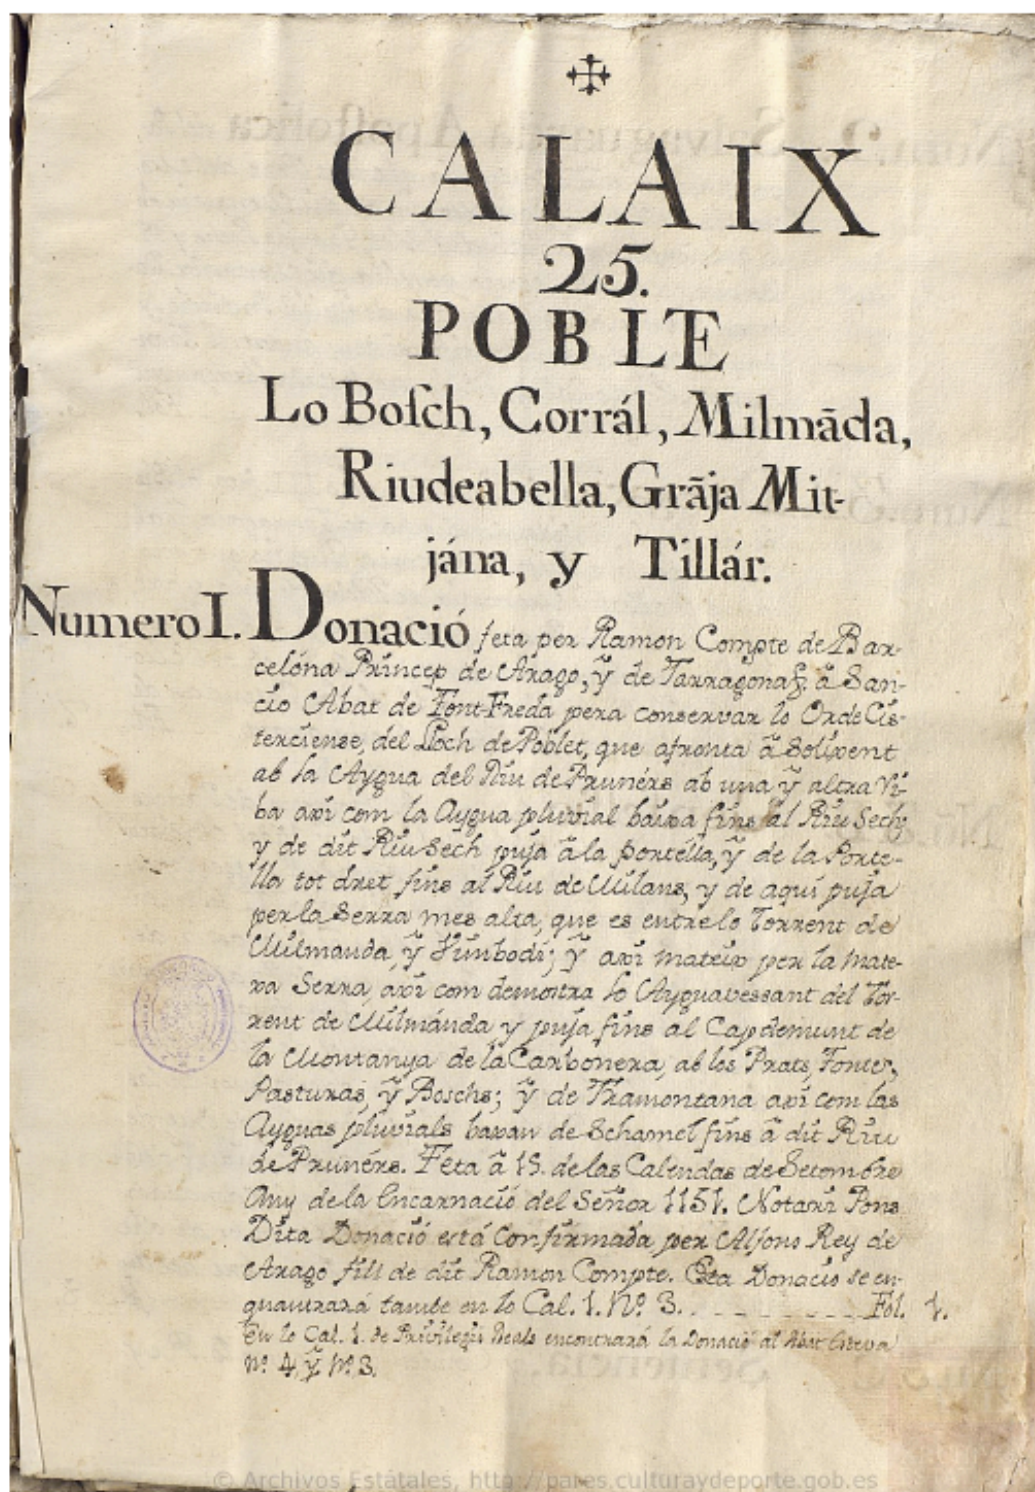 CALAIX
25.
POBLE
Lo Boſch, Corrál, Milmāda,
Riudeabella, Grāja Mit-
jána, y Tillár.
Numero I. Donació feta per Ramon Compte de Bar-
celóna Princep de Arago, ÿ de Tarragona &. â San-
cio Abat de Font-Freda pera conservar lo Orde Cis-
terciense, del Lloch de Poblet, que afronta â Solixent
ab la Aygua del Riu de Prunérs ab una ÿ altra Ri-
ba axi com la Aygua pluvial baixa fins al Riu Sech,
y de dit Riu Sech puja â la portélla, ÿ de la Porte-
lla tot dret fins al Riu de Milans, y de aqui puja
per la Serra mes alta, que es entre lo Torrent de
Milmanda, ÿ Fúnbodí; ÿ axi mateix per la mate-
xa Serra, axi com demostra lo Ayguavessant del Tor-
rent de Milmánda y puja fins al Capdemunt de
la Montanya de la Carbonera, ab los Prats, Fonts,
Pasturas, ÿ Boschs; ÿ de Tramontana axi com las
Ayguas pluvials baxan de Schamel fins â dit Riu
de Prunérs. Feta â 15. de las Calendas de Setembre
Any de la Encarnació del Señor 1151. Notari Pons
Dita Donació está Confirmada per Alfons Rey de
Arago fill de dit Ramon Compte. Esta Donacio se en-
quantrará tambe en lo Cal. 1. Nº. 3. Fol. 1.
En lo Cal. 1. de Privilegis Reals encontrará la Donació al Abat Esteva
nº. 4, ÿ Nº. 3.
© Archivos Estatales, http://pares.culturaydeporte.gob.es